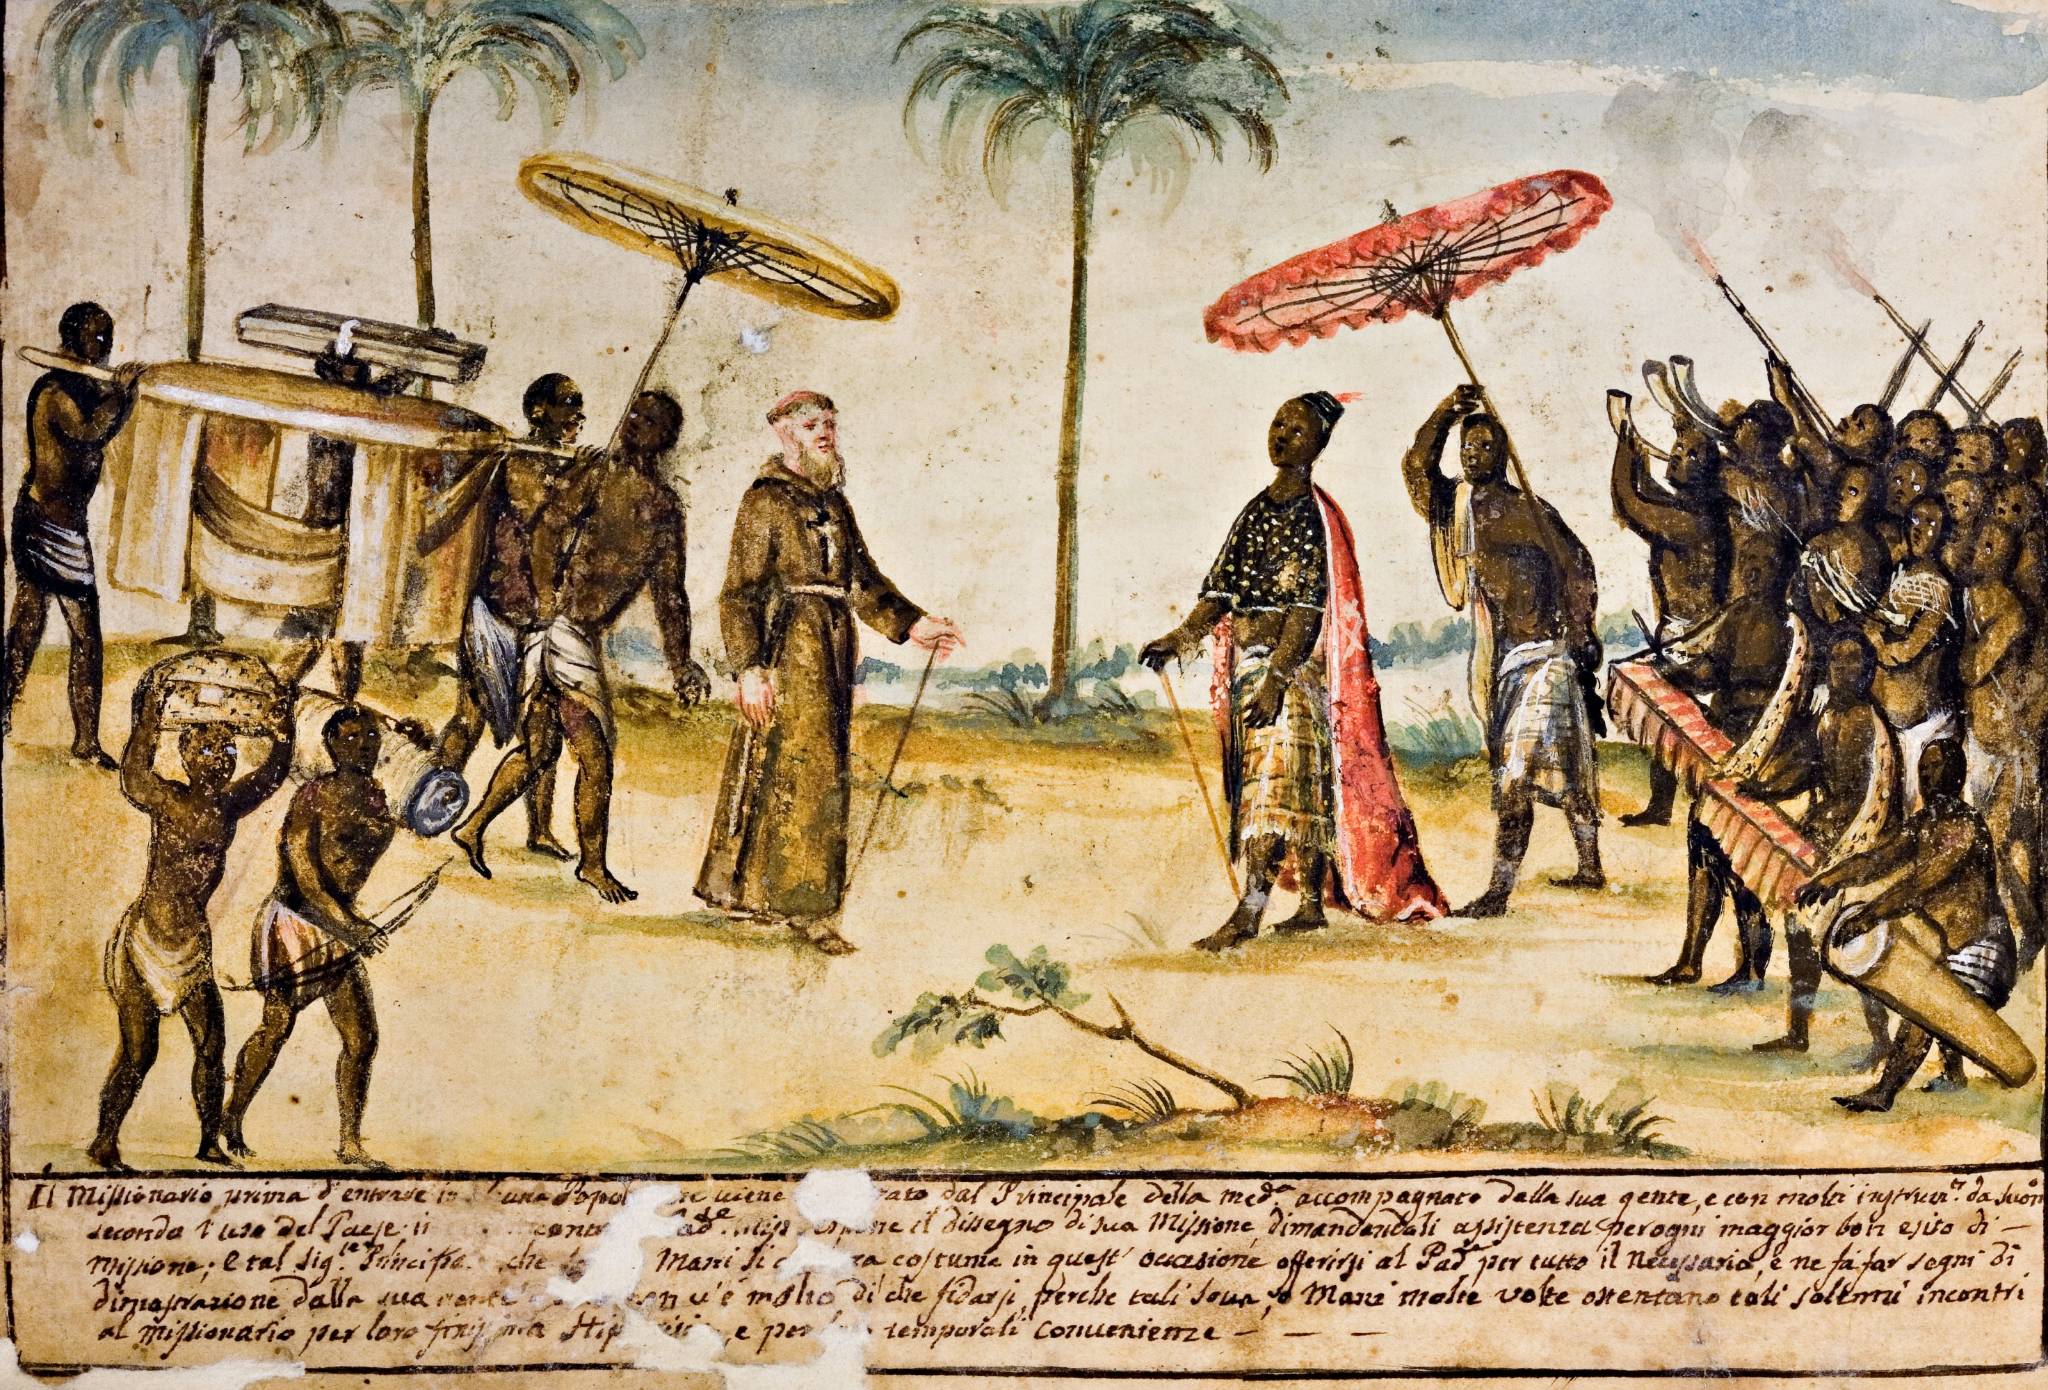 Il Missionario prima d'entrare in alcuna Popol ne viene rato dal Principale della med.ª accompagnato dalla sua gente, e con molti instrum.ti da suono
secondo l'uso del Paese; i incontr Pad.e Miss. espone il dissegno di sua Missione, dimandandoli assistenza per ogni maggior bon esito di
missione; e tal Sig.le Principe che Mani si costuma in quest' occasione offerirsi al Pad.e per tutto il Necessario, e ne fa far segni di
dimostrazione dalla sua gente non v'è molto di che fidarsi, perche tali Sova, o Mani molte volte ostentano tali solenni incontri
al missionario per loro finissima , e per temporali convenienze